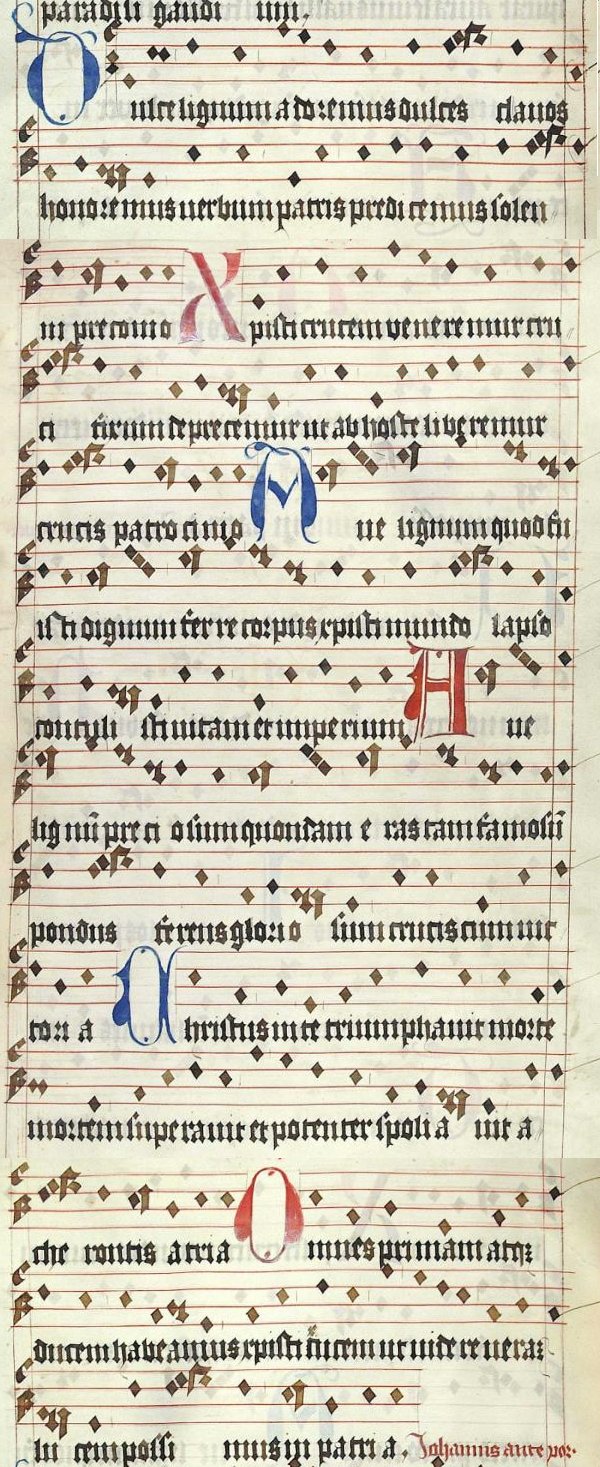 paradisi gaudi um.
Dulce lignum adoremus dulces clauos
honoremus uerbum patris predicemus solen
ni preconio Xpisti crucem veneremur cru
ci fixum deprecemur ut ab hoste liberemur
crucis patrocinio Aue lignum quod fu
isti dignum ferre corpus xpisti mundo lapso
contuli sti uitam et imperium Aue
lignū preci osum quondam e ras tam famosū
pondus ferens glorio sum crucis cum uic
tori a Christus in te triumphauit morte
mortem superauit et potenter spoli a uit a
che rontis atria Omnes primam atqꝫ
ducem habeamus xpisti crucem ut uidere ueraꝫ
lu cem possi mus in patri a. Johannis ante por.